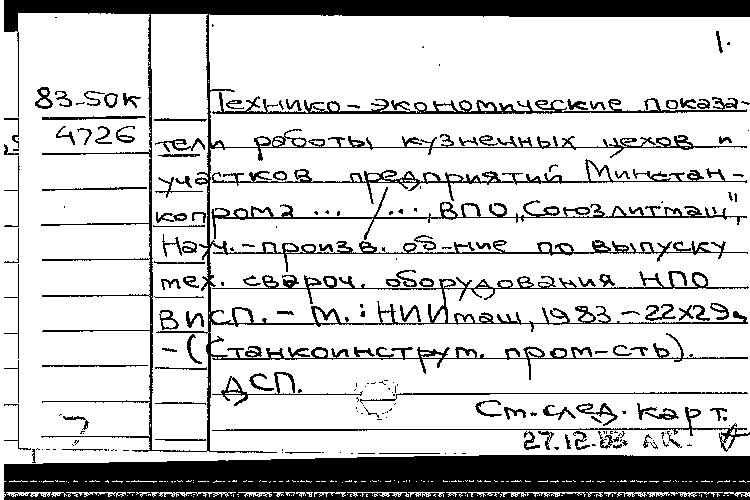 1.
83-50к
4726
Технико-экономические показа-
тели работы кузнечных цехов и
участков предприятий Минстан-
копрома ... ..., ВПО „Союзлитмаш",
Науч.-произв. об-ние по выпуску
тех. свароч. оборудования НПО
ВИСП. - М.: НИИмаш, 1983. - 22х29
- (Станкоинструм. пром-сть).
ДСП.
См. след. карт.
27.12.83